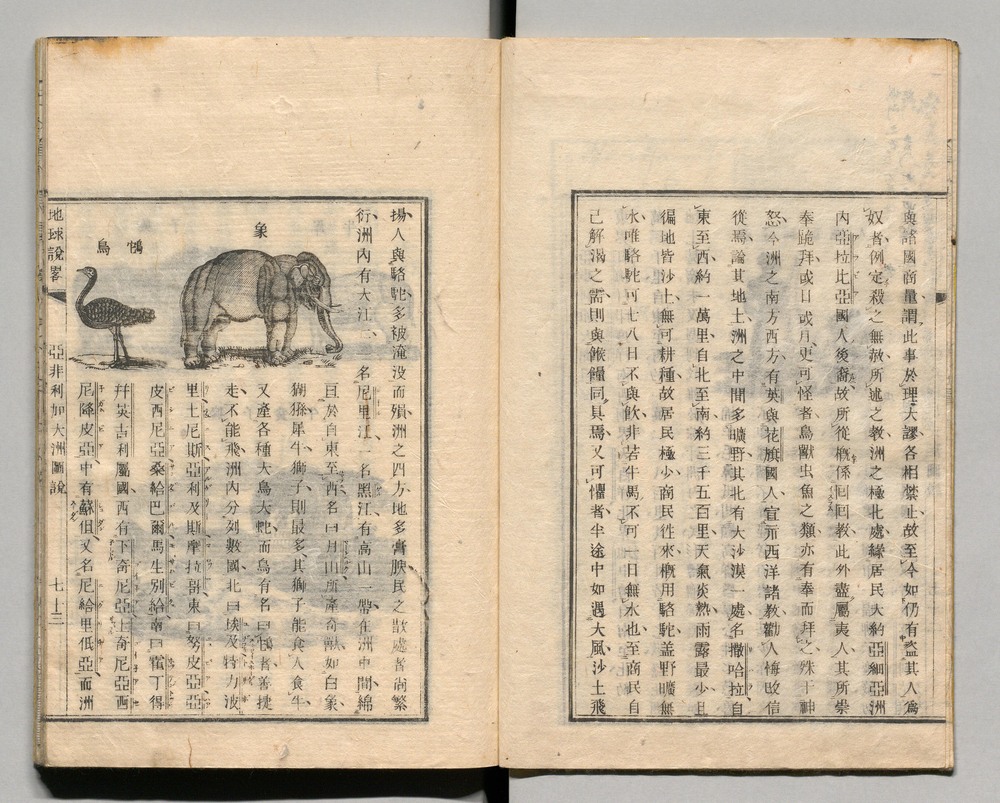 與諸國商量謂此事於理大謬各相禁止故至今如仍有盜其人爲
奴者例定殺之無赦所述之教洲之極北處緣居民大約亞細亞洲
內亞拉比亞國人後裔故所從檄係回回教此外盡屬夷人其所崇
奉跪拜或日或月更可怪者鳥獸虫魚之類亦有奉而拜之殊干神
怒今洲之南方西方有英與花旗國人宣示西洋諸教勸人悔改信
從焉論其地土洲之中間多曠野其北有大沙漠一處名撒哈拉自
東至西約一萬里自北至南約三千五百里天氣炎熱雨露最少且
徧地皆沙土無可耕種故居民極少商民徃來檄用駱駝盖野曠無
水唯駱駝可七八日不與飲非若牛馬不可一日無水也至商民自
己解渴之需則與餱餹同具焉又可懼者半途中如遇大風沙土飛
揚人與駱駝多被淹没而殞洲之四方地多膏腴民之散處者尚繁
衍洲內有大江二一名尼里江一名黑江有高山一帶在洲中間綿
亘於自東至西名曰月山所產奇獸如白象
猢猻犀牛獅子則最多其獅子能食人食牛
又產各種大鳥大蛇而鳥有名曰鴕者善捷
走不能飛洲內分列數國北曰埃及特力波
里土尼斯亞利及斯摩拉哥東曰努皮亞亞
皮西尼亞桑給巴爾馬生別給南曰霍丁得
并英吉利屬國西有下奇尼亞上奇尼亞西
尼降皮亞中有蘇但又名尼給里低亞而洲
象
鴕鳥
地球說畧
亞非利加大洲圖說
七十三